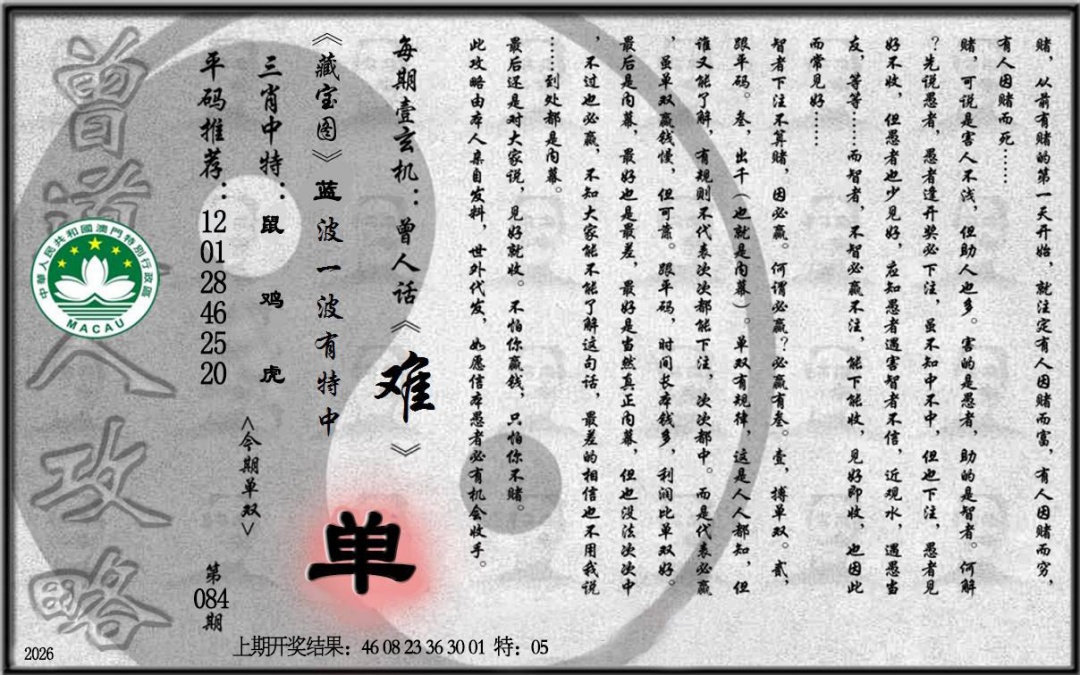 赌，从前有赌的第一天开始，就注定有人因赌而富，有人因赌而穷，
有人因赌而死……
赌，可说是害人不浅，但助人也多。害的是愚者，助的是智者。何解
？先说愚者，愚者逢开奖必下注，虽不知中不中，但也下注，愚者见
好不收，但愚者也少见好，应知愚者遇害智者不信，近观水，遇愚当
友，等等……而智者，不智必赢不注，能下能收，见好即收，也因此
而常见好……
智者下注不算赌，因必赢。何谓必赢？必赢有叁。壹，搏单双。贰，
跟平码。叁，出千（也就是内幕）。单双有规律，这是人人都知，但
谁又能了解，有规则不代表次次都能下注，次次都中。而是代表必赢
，虽单双赢钱慢，但可靠。跟平码，时间长本钱多，利润比单双好。
最后是内幕，最好也是最差，最好是当然真正内幕，但也没法次次中
，不过也必赢，不知大家能不能了解这句话，最差的相信也不用我说
……到处都是内幕。
最后还是对大家说，见好就收。不怕你赢钱，只怕你不赌。
此攻略由本人亲自发料，世外代发，如愿信本愚者必有机会收手。
每期壹玄机：曾人话《难》
《藏宝图》蓝波一波有特中
三肖中特：鼠 鸡 虎
平码推荐：12 01 28 46 25 20
<今期单双>
单
第084期
曾道人攻略
中華人民共和國澳門特別行政區
MACAU
2026
上期开奖结果：46 08 23 36 30 01 特：05